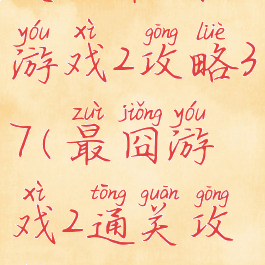 yóu xì gōng lüè
游戏2攻略3
zuì jiǒng yóu
7(最囧游
xì tōng guān gōng
戏2通关攻